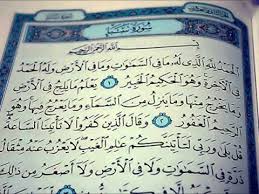 سُورَةُ سَبَإٍ
بِسْمِ اللَّهِ الرَّحْمَٰنِ الرَّحِيمِ
ٱلْحَمْدُ لِلَّهِ ٱلَّذِى لَهُۥ مَا فِى ٱلسَّمَٰوَٰتِ وَمَا فِى ٱلْأَرْضِ وَلَهُ ٱلْحَمْدُ
فِى ٱلْءَاخِرَةِ وَهُوَ ٱلْحَكِيمُ ٱلْخَبِيرُ ١ يَعْلَمُ مَا يَلِجُ فِى
وَمَا يَخْرُجُ مِنْهَا وَمَا يَنزِلُ مِنَ ٱلسَّمَآءِ وَمَا يَعْرُجُ فِيهَا وَهُوَ
ٱلرَّحِيمُ ٱلْغَفُورُ ٢ وَقَالَ ٱلَّذِينَ كَفَرُوا۟ لَا تَأْتِينَا
قُلْ بَلَىٰ وَرَبِّى لَتَأْتِيَنَّكُمْ عَٰلِمِ ٱلْغَيْبِ لَا يَعْزُبُ عَنْهُ مِثْقَالُ
ذَرَّةٍ فِى ٱلسَّمَٰوَٰتِ وَلَا فِى ٱلْأَرْضِ وَلَآ أَصْغَرُ مِن